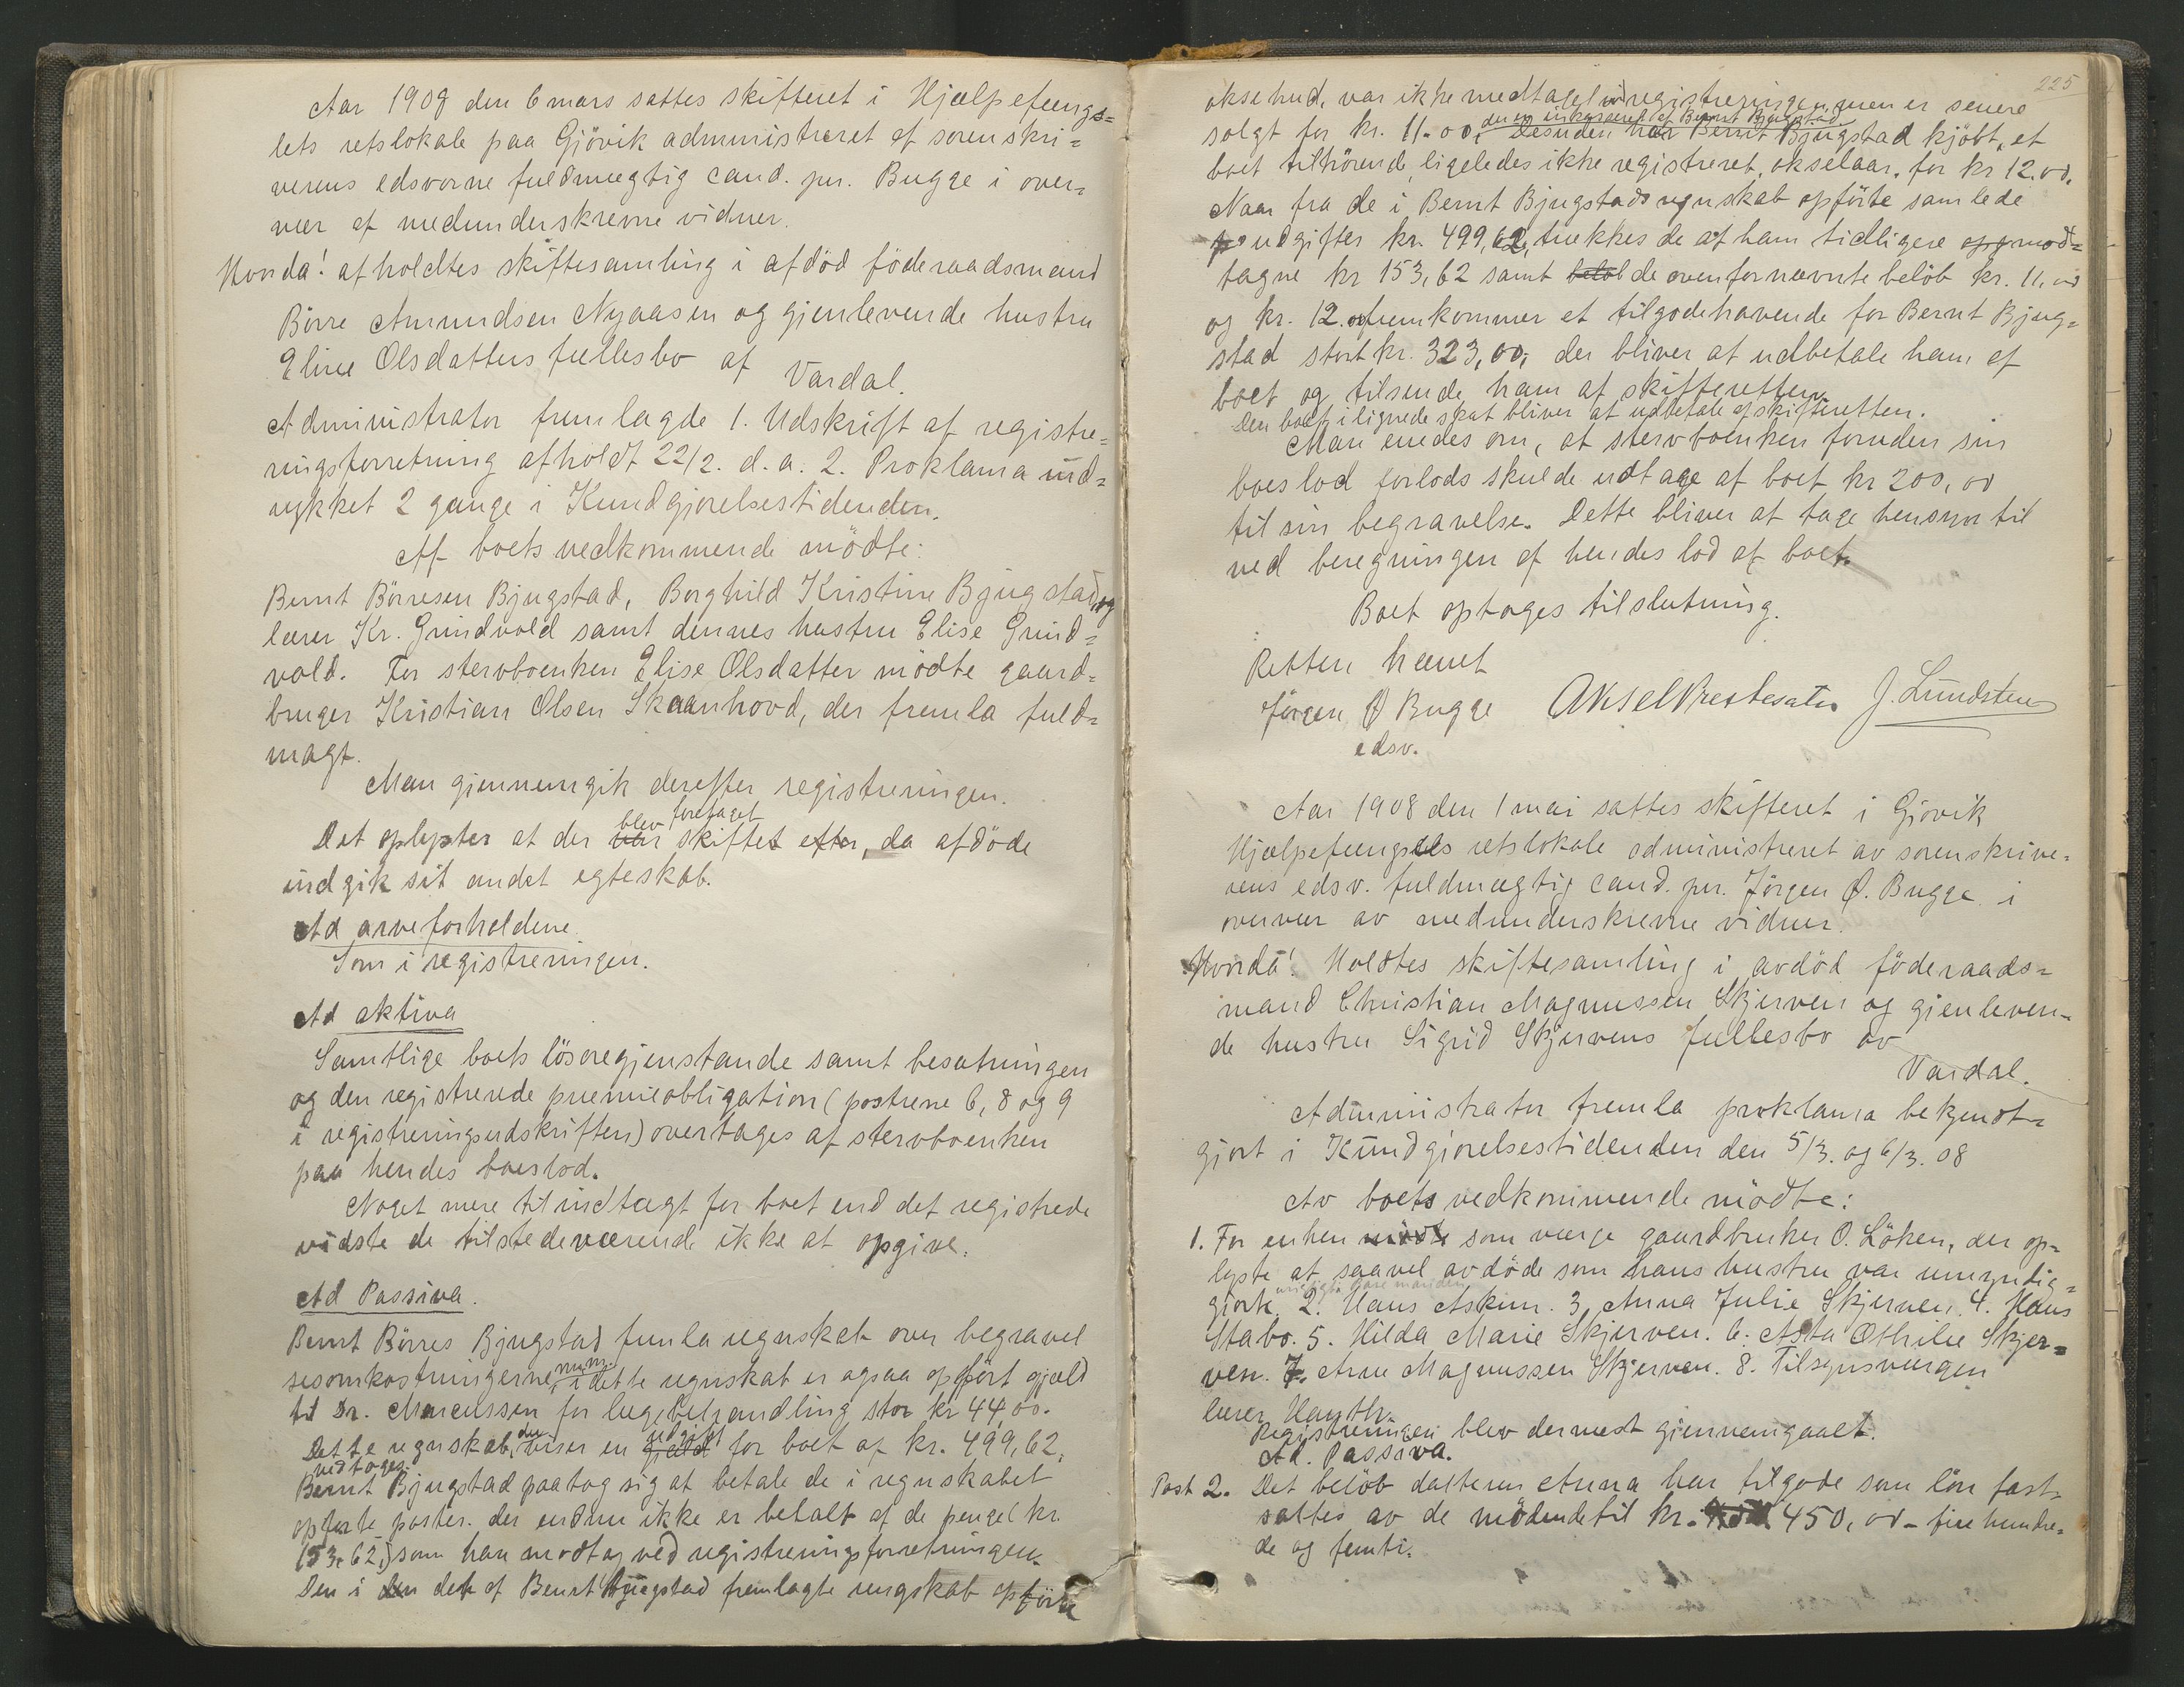 Aar 1908 den 6 mars sattes skifteret i Hjælpefængs=
lets retslokale paa Gjövik administreret af sorenskri=
verens edsvorne fuldmægtig cand. jur. Bugge i over=
vær af medunderskrevne vidner.
Hvorda! afholdtes skiftesamling i afdöd föderaadsmand
Börre Amundsen Nyaasen og gjenlevende hustru
Eline Olsdatters fællesbo af
Vardal.
Administrator fremlagde 1. Udskrift af registre=
ringsforretning afholdt 22/2. d. a. 2. Proklama ind=
rykket 2 gange i Kundgjorelsestidenden.
Af boets vedkommende mödte:
Bernt Börresen Bjugstad, Borghild Kristine Bjugstad, og
lærer Kr. Grindvold samt dennes hustru Elise Grind=
vold. For stervboenken Elise Olsdatter mödte gaard=
bruger Kristian Olsen Skaanhovd, der fremla fuld=
magt.
Man gjennemgik derefter registreringen.
blev foretaget
Det oplystes at der var skiftet efter, da afdöde
indgik sit andet egteskab.
Ad arveforholdene.
Som i registreringen.
Ad aktiva
Samtlige boets lösöregjenstande samt besætningen
og den registrerede præmieobligation (posterne 6, 8 og 9
i registreringsudskriften) overtages af stervboenken
paa hendes boeslod.
Noget mere til indtægt for boet end det registrede
vidste de tilstedeværende ikke at opgive.
Ad Passiva.
Bernt Börres Bjugstad fremla regnskab over begravel
sesomkostningerne m.m. i dette regnskab er ogsaa opfört gjæld
til Dr. Marcussen for lægebehandling stor kr 44,00.
der udgift
Dette regnskab, viser en gjæld for boet af kr. 499,62.
vedtoges.
Bernt Bjugstad paatog sig at betale de i regnskabet
opförte poster. der endnu ikke er betalt af de penge (kr.
153,62.) som han modtog ved registreringsforretningen.
Den i den det af Bernt Bjugstad fremlagte rengskab opförte
225
oksehud, var ikke medtaget ved registreringen, men er senere
der er inkasseret af Bernt Bjugstad
solgt for kr. 11.00. Desuden har Bernt Bjugstad kjöbt, et
boet tilhörende, ligeledes ikke registreret, okselaar, for kr 12.00.
Naar fra de i Bernt Bjugstads regnskab opförte samlede
udgifter kr. 499,62, trækkes de af ham tidligere opg mod=
tagne kr 153,62 samt belöb de ovenfornævnte belöb kr. 11,00
og kr. 12.00 fremkommer et tilgodehavende for Bernt Bjug=
stad stort kr. 323,00, der bliver at udbetale ham af
boet og tilsende ham af skifteretten.
Den boet ilignede skat bliver at udbetale af skifteretten.
Man enedes om, at stervboenken foruden sin
boeslod forlods skulde udtage af boet kr 200,00
til sin begravelse. Dette bliver at tage hensyn til
ved beregningen af hendes lod af boet.
Boet optages til slutning.
Retten hævet
Jörgen Ø Bugge Aksel Prestesæter J. Lundsten
edsv.
Aar 1908 den 1 mai sattes skifteret i Gjövik
Hjælpefængsels retslokale administreret av sorenskrive=
rens edsv. fuldmægtig cand. jur. Jörgen Ø. Bugge i
overvær av medunderskrevne vidner.
Hvorda! Holdtes skiftesamling i avdöd föderaads=
mand Christian Magnussen Skjerven og gjenleven=
de hustru Sigrid Skjervens fællesbo av
Vardal.
Administrator fremla proklama bekjendt=
gjort i Kundgjorelsestidenden den 5/3. og 6/3. 08
Av boets vedkommende mödte:
1. For enken mödte som værge gaardbruker O. Löken, der op=
lyste at saavel avdöde som hans hustru var umyndig=
gjort. 2. Hans Askim. 3. Anna Julie Skjerven. 4. Hans
Stabo. 5. Hilda Marie Skjerven. 6. Asta Othilie Skjer=
ven. 7. Arne Magnussen Skjerven. 8. Tilsynsværgen
lærer Hauth.
Registreringen blev dernæst gjennemgaaet.
Ad. Passiva.
Post 2. Det belöb datteren Anna har tilgode som lön fast=
sattes av de mödende til kr. 450,00 - fire hundre=
de og femti.